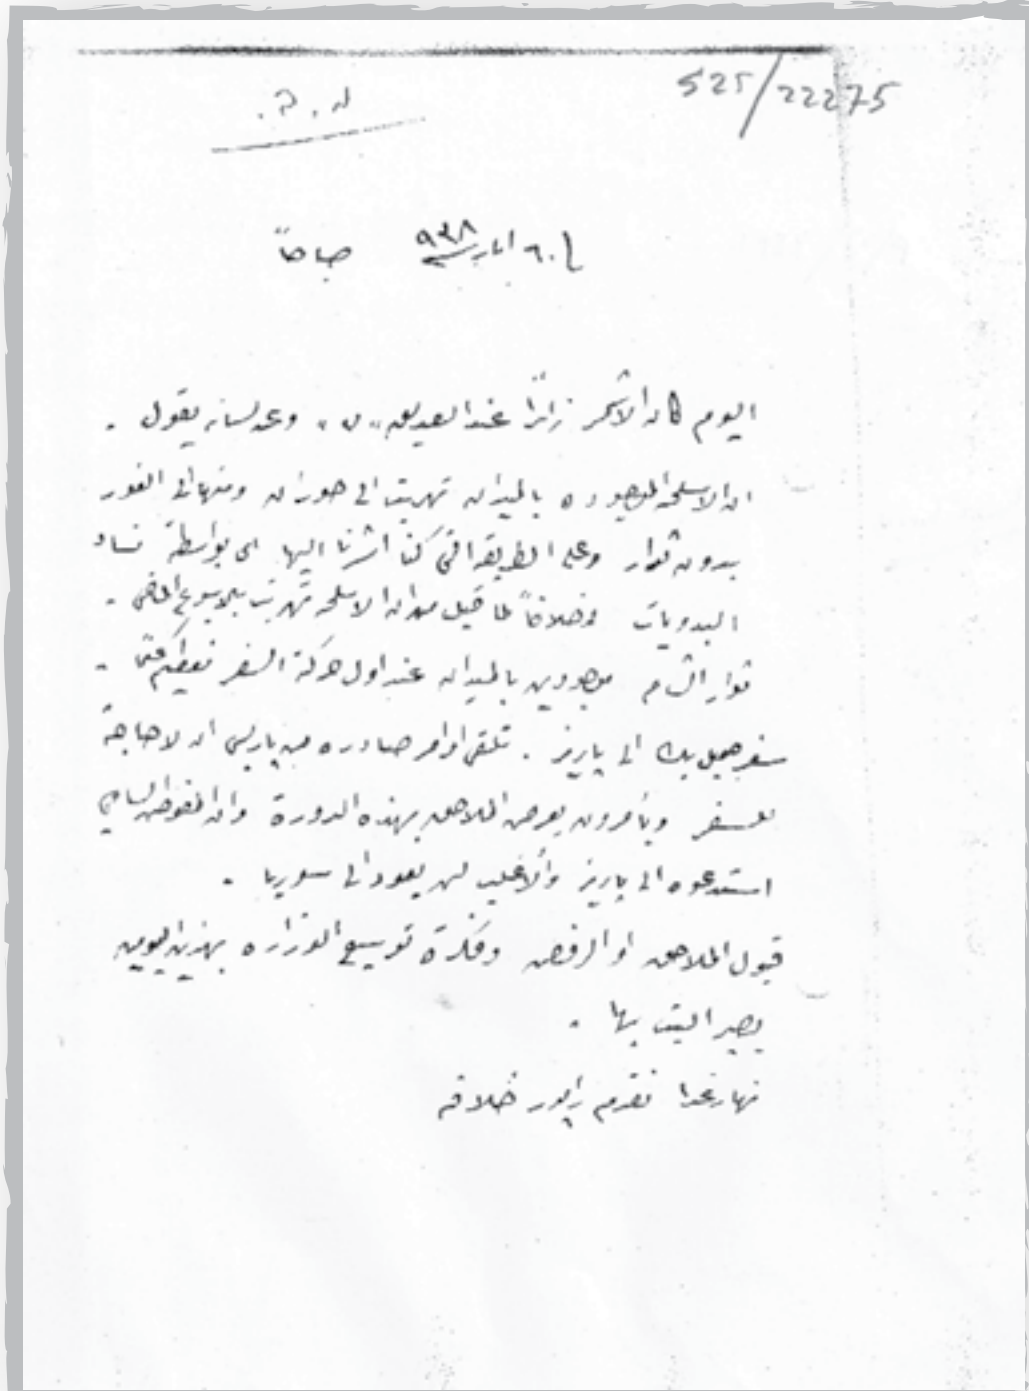 525/22275
صباحاً
اليوم كان الاشمر زائراً عند الصديق «ن» وعن لسانه يقول .
ان الاسلحة الموجوده بالميدان تهربت الى حوران ومنها الى الغور
بدون ثوار وعلى الطريقة التي كنا اشرنا اليها اي بواسطة نساء
البدويات وخلافاً لما قيل من ان الاسلحه تهربت بالاسبوع الماضي .
ثوار الشام موجودين بالميدان عند اول حركة السفر نعطيكم
سفر جميل بك الى باريز . تلقى اوامر صادره من باريس ان لا حاجة
للسفر ويأمرون بعرض الملاحق بهذه الدورة وان المفوض السامي
استدعوه الى باريز والأغلب لن يعود الى سوريا .
قبول الملاحق او الرفض وفكرة توسيع الوزاره بهذين اليومين
يصير البت بها .
نهار غدا نقدم رابور خلافه